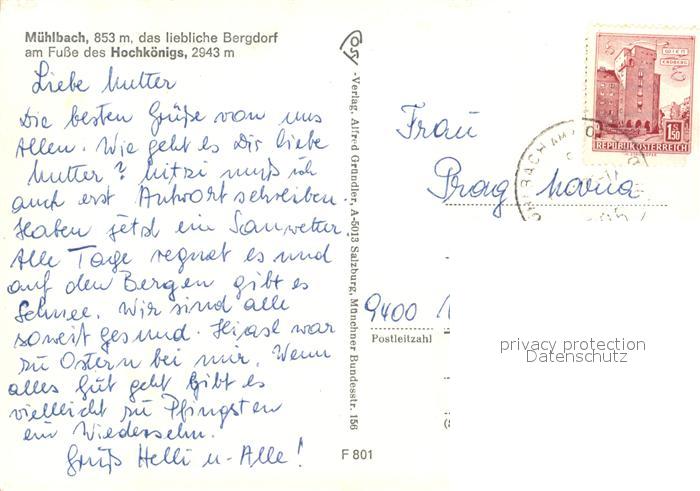 Mühlbach, 853 m, das liebliche Bergdorf
am Fuße des Hochkönigs, 2943 m
Liebe Mutter
Die besten Grüße von uns
Allen. Wie geht es Dir liebe
Mutter? hitzi muß ich
auch erst Antwort schreiben.
Haben jetzt ein Sauwetter
Alle Tage regnet es und
auf den Bergen gibt es
Schnee. Wir sind alle
soweit gesund. Hiasl war
zu Ostern bei mir. Wenn
alles Gut geht Gibt es
vielleicht zu Pfingsten
ein Wiedersehn.
Gruß Helli u. Alle!
-Verlag, Alfred Gründler, A-5013 Salzburg, Münchner Bundesstr. 156
F 801
WIEN
ERDBERG
1.50
REPUBLIK ÖSTERREICH
Frau
Prag Maria
9400
Postleitzahl
privacy protection
Datenschutz